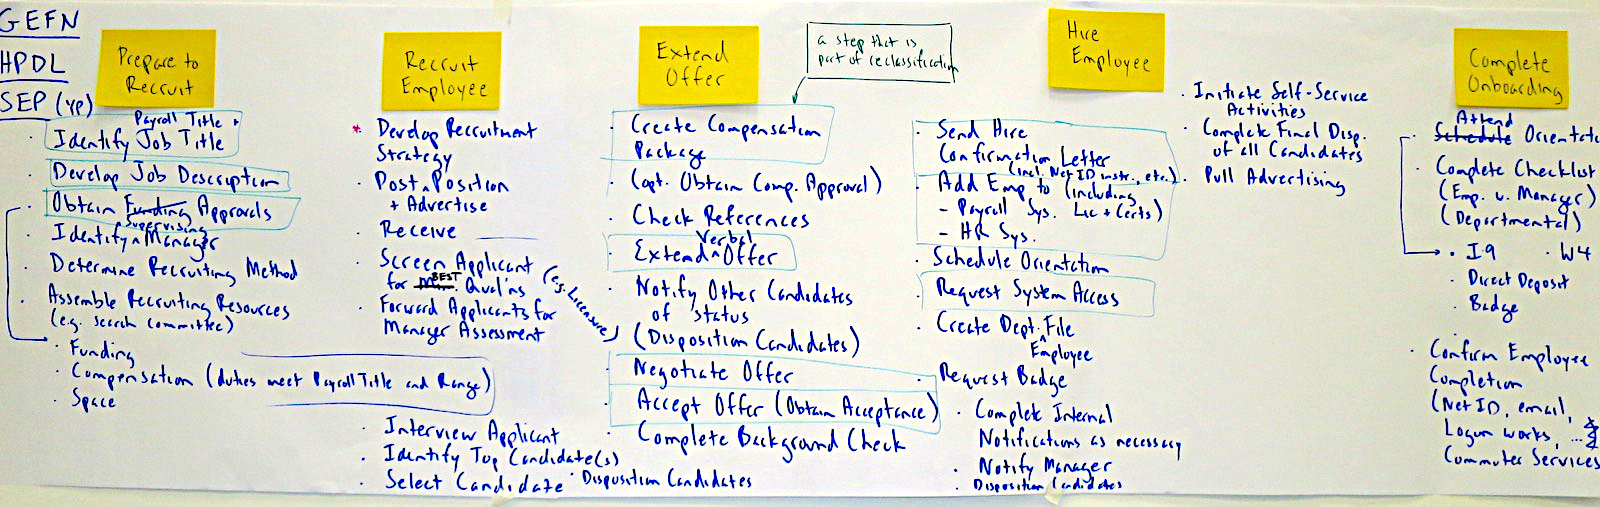 GEFN
HPDL
SEP (YP)
Prepare to
Recruit
Payroll Title &
· Identify Job Title
· Develop Job Description
· Obtain Funding Approvals
Supervising
· Identify ^ Manager
· Determine Recruiting Method
· Assemble Recruiting Resources
(e.g. search committee)
· Funding
· Compensation (duties meet Payroll Title and Range)
· Space
Recruit
Employee
* Develop Recruitment
Strategy
· Post ^ Position
+ Advertise
· Receive
· Screen Applicant
BEST
for Qual'ns
(e.g. Licensure)
· Forward Applicants for
Manager Assessment
· Interview Applicant
· Identify Top Candidate(s)
· Select Candidate · Disposition Candidates
Extend
Offer
a step that is
part of reclassification
· Create Compensation
Package
· (opt. Obtain Comp. Approval)
· Check References
Verbal
· Extend ^ Offer
· Notify Other Candidates
of status
(Disposition Candidates)
· Negotiate Offer
· Accept Offer (Obtain Acceptance)
· Complete Background Check
Hire
Employee
· Send Hire
Confirmation Letter
(incl. Net ID instr., etc.)
· Add Emp to (including
- Payroll Sys. Lic + Certs)
- HR Sys.
· Schedule Orientation
· Request System Access
· Create Dept. ^ File
Employee
· Request Badge
· Complete Internal
Notifications as necessary
· Notify Manager
· Disposition Candidates
· Initiate Self-Service
Activities
· Complete Final Disp.
of all Candidates
· Pull Advertising
Complete
Onboarding
Attend
· Schedule Orientat
· Complete Checklist
(Emp. v. Manager)
(Departmental)
· I-9 · W4
· Direct Deposit
· Badge
· Confirm Employee
Completion
(Net ID, email,
Logon works, ...
Commuter Services